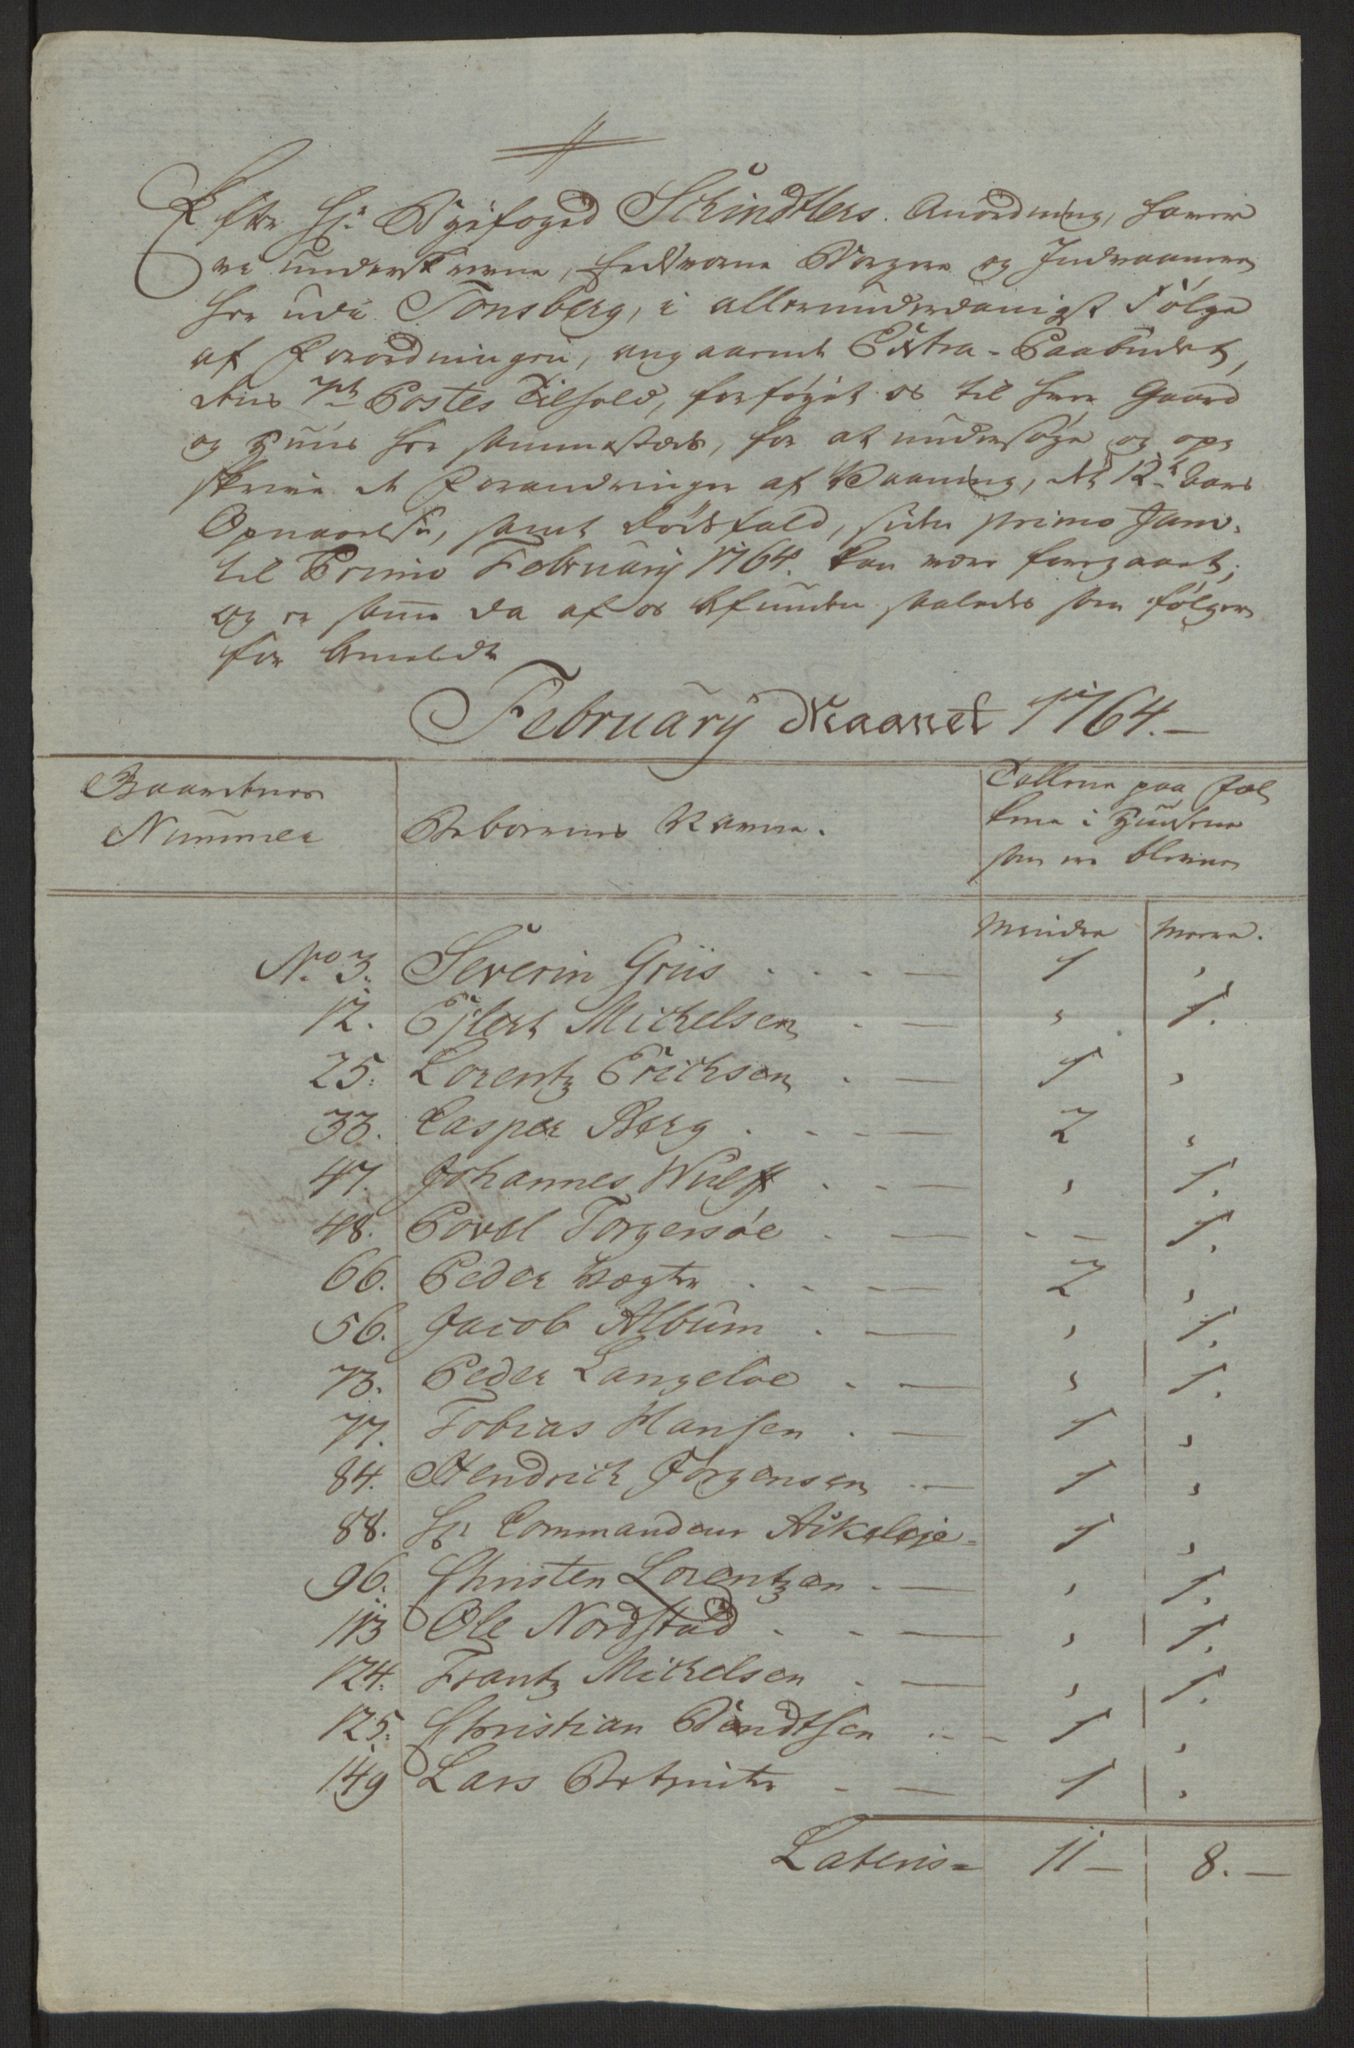 Efter Hr. Byefoged Schindtlers Anordning, haver
vi underskrevne, Eedsvorne Borgere og Indvaanere
her udi Tonsberg, i allerunderdanigst Følge
af Forordningen, angaaende Extra-Paabudet,
dens 7de Postes Tilhold, forføyet os til hver Gaard
og Huus her sammesteds, for at undersøge og op¬
skrive de Forandringer af Vaaning, det 12te Aars
Opnaaelse, samt Dødsfald, siden primo Janv.
til Primo February 1764. kan være foregaaet;
og er samme da af os befunden saaledes som følger
for bemeldte
February Maanet 1764.-
Gaardenes
Nummer
Beboernes Navne.
Tallene paa Fol¬
kene i Huusene
som ere blevne
Mindre Meere.
No. 3. Severin Griis 1 ,
12. Ejlert Michelsen , 1.
25. Lorentz Erichsen 1 ,
33. Casper Berg 2 ,
47. Johannes Wulff , 1.
48. Povel Torgersøe - 1.
66. Peder Vægter 2 ,
56. Jacob Album , 1.
73. Peder Langeløe , 1.
77. Tobias Hansen 1 ,
84. Hendrich Jørgensen 1 ,
88. Hr. Commandeur Aikeleje 1 ,
96. Christen Lorentzen , 1.
113 Ole Nordstad , 1.
124. Frantz Michelsen , 1.
125. Christian Bendtsen 1 ,
149 Lars 1 ,
Lateris 11 - 8. -